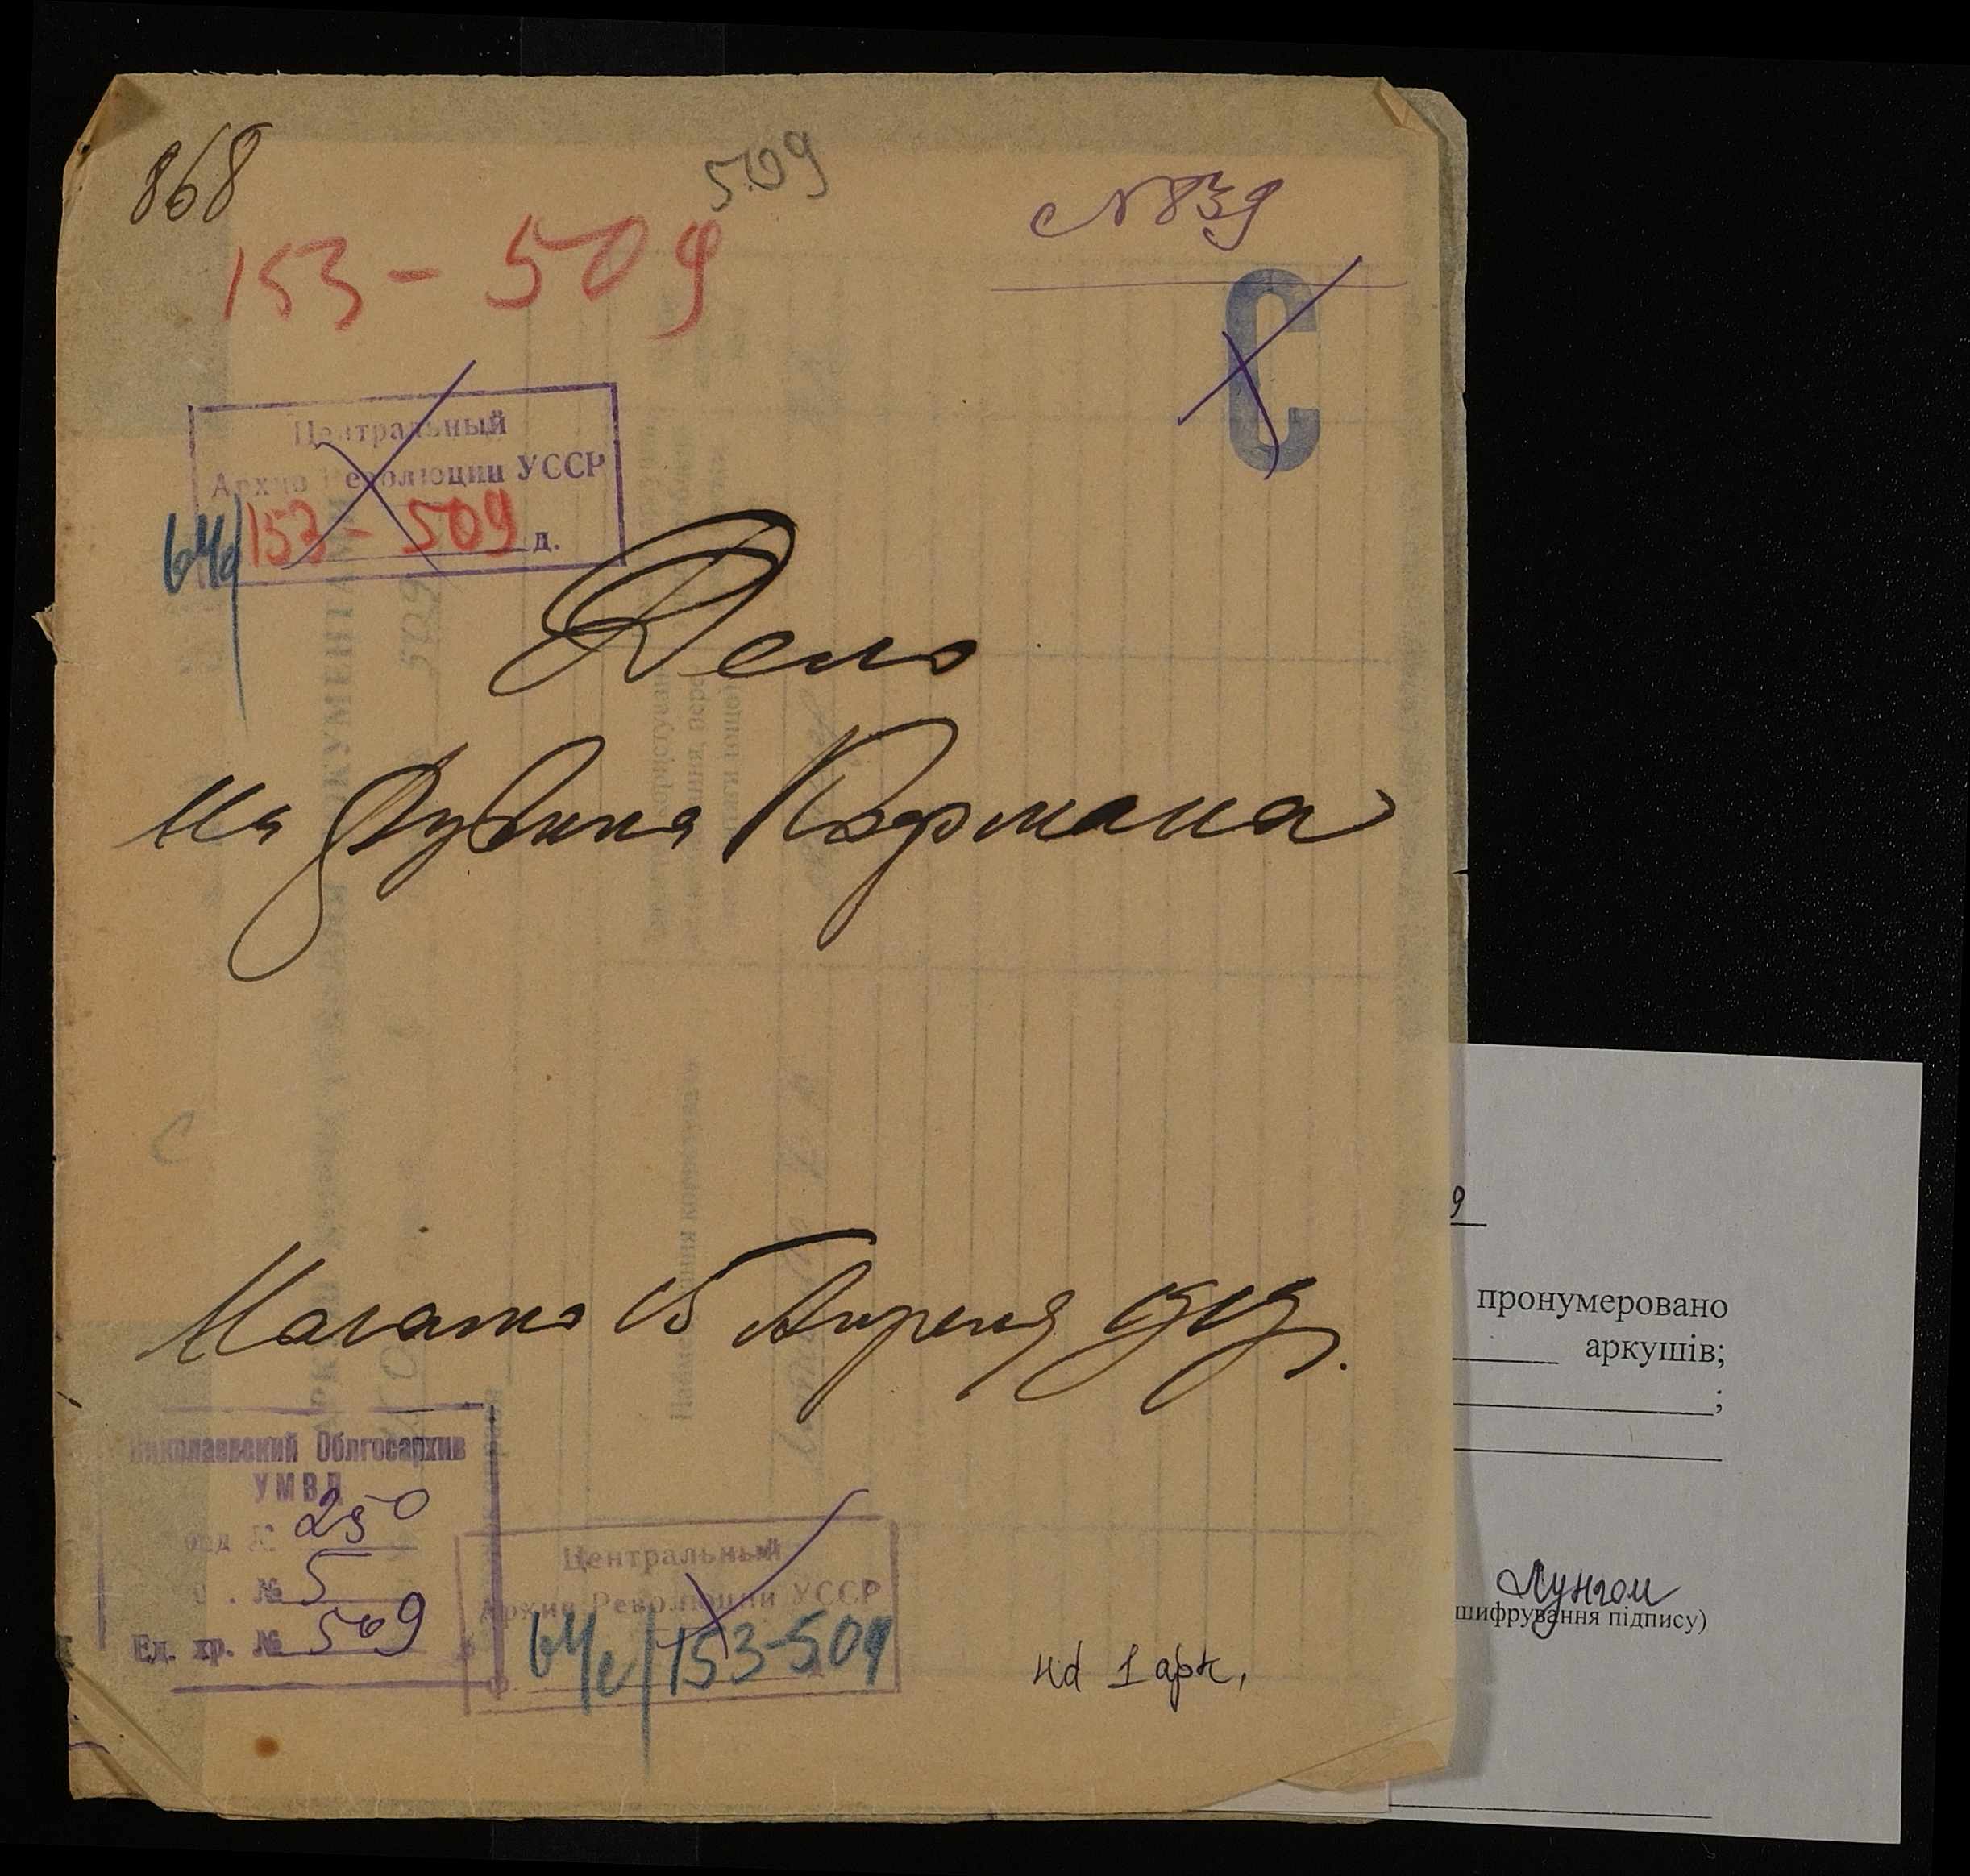 868
509
№ 839
153 - 509
С
Центральный
Архив Революции УССР
153 - 509 д.
Дело
на Дувина Кофмана
Начато 15 Апреля 919.
Николаевский Облгосархив
УМВД
Фонд № 250
№ 5
Ед. хр. № 509
Центральный
Архив Революции УССР
153-509
на 1 арк.
9
пронумеровано
аркушів;
;
шифрування підпису)